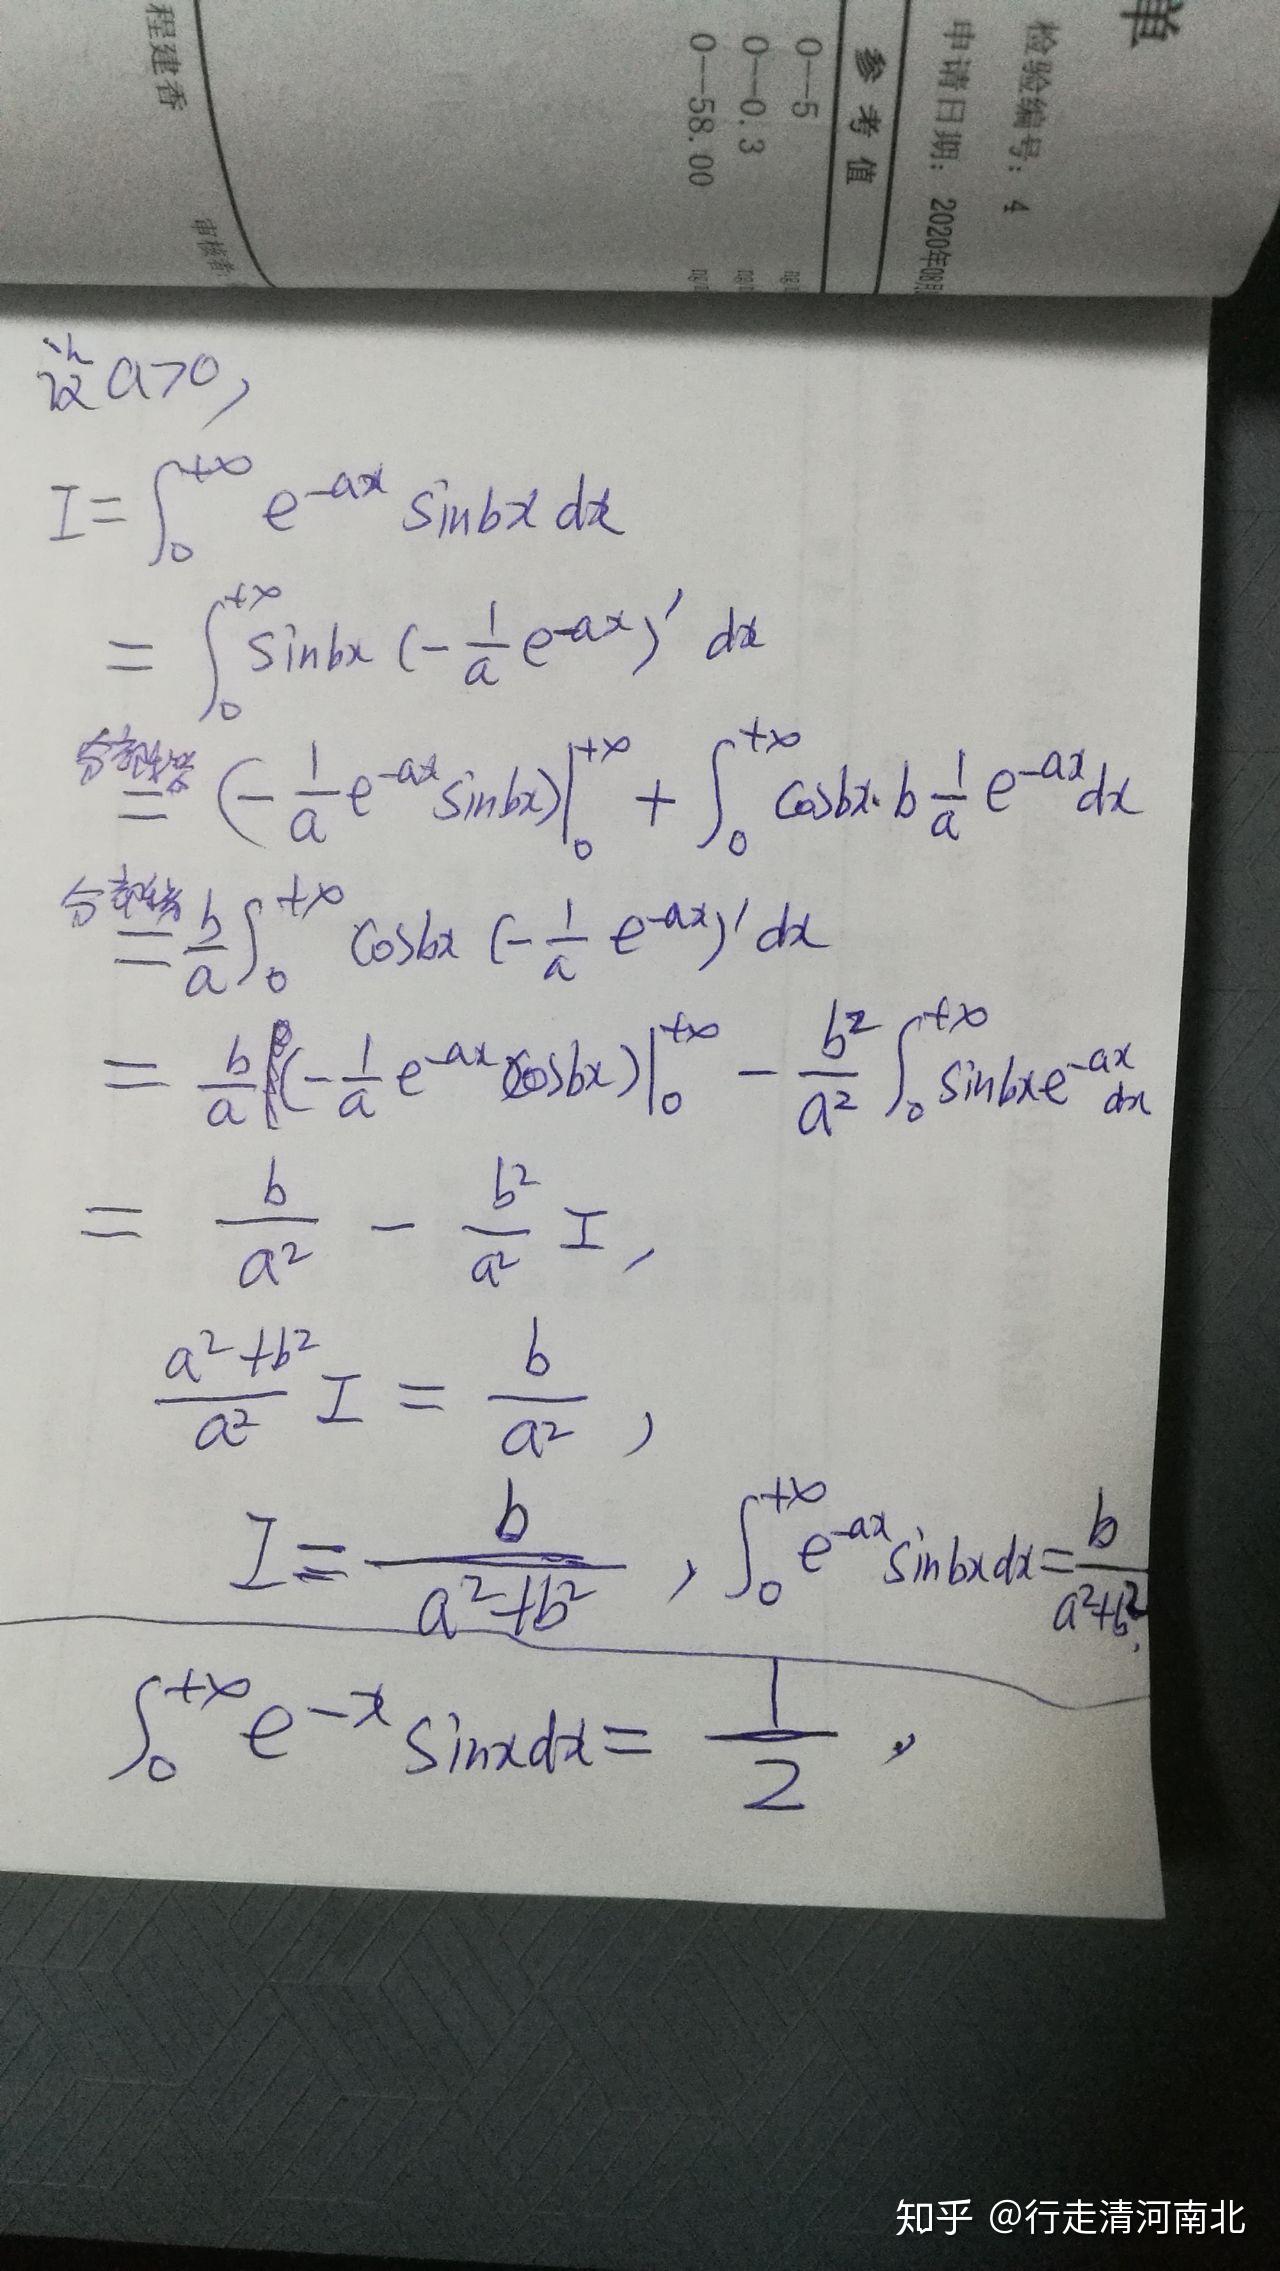 单
检验编号: 4
申请日期: 2020年08月
参考值
0—5
0—0.3
0—58.00
审核者:
程建香
设 a>0,
I = ∫₀^{+∞} e^{-ax} sinbx dx
= ∫₀^{+∞} sinbx (-1/a e^{-ax})' dx
= (-1/a e^{-ax} sinbx)|₀^{+∞} + ∫₀^{+∞} cosbx·b 1/a e^{-ax} dx
= b/a ∫₀^{+∞} cosbx (-1/a e^{-ax})' dx
= b/a (-1/a e^{-ax} cosbx)|₀^{+∞} - b²/a² ∫₀^{+∞} sinbx e^{-ax} dx
= b/a² - b²/a² I,
(a²+b²)/a² I = b/a²,
I = b/(a²+b²), ∫₀^{+∞} e^{-ax} sinbx dx = b/(a²+b²).
∫₀^{+∞} e^{-x} sinx dx = 1/2,
知乎 @行走清河南北